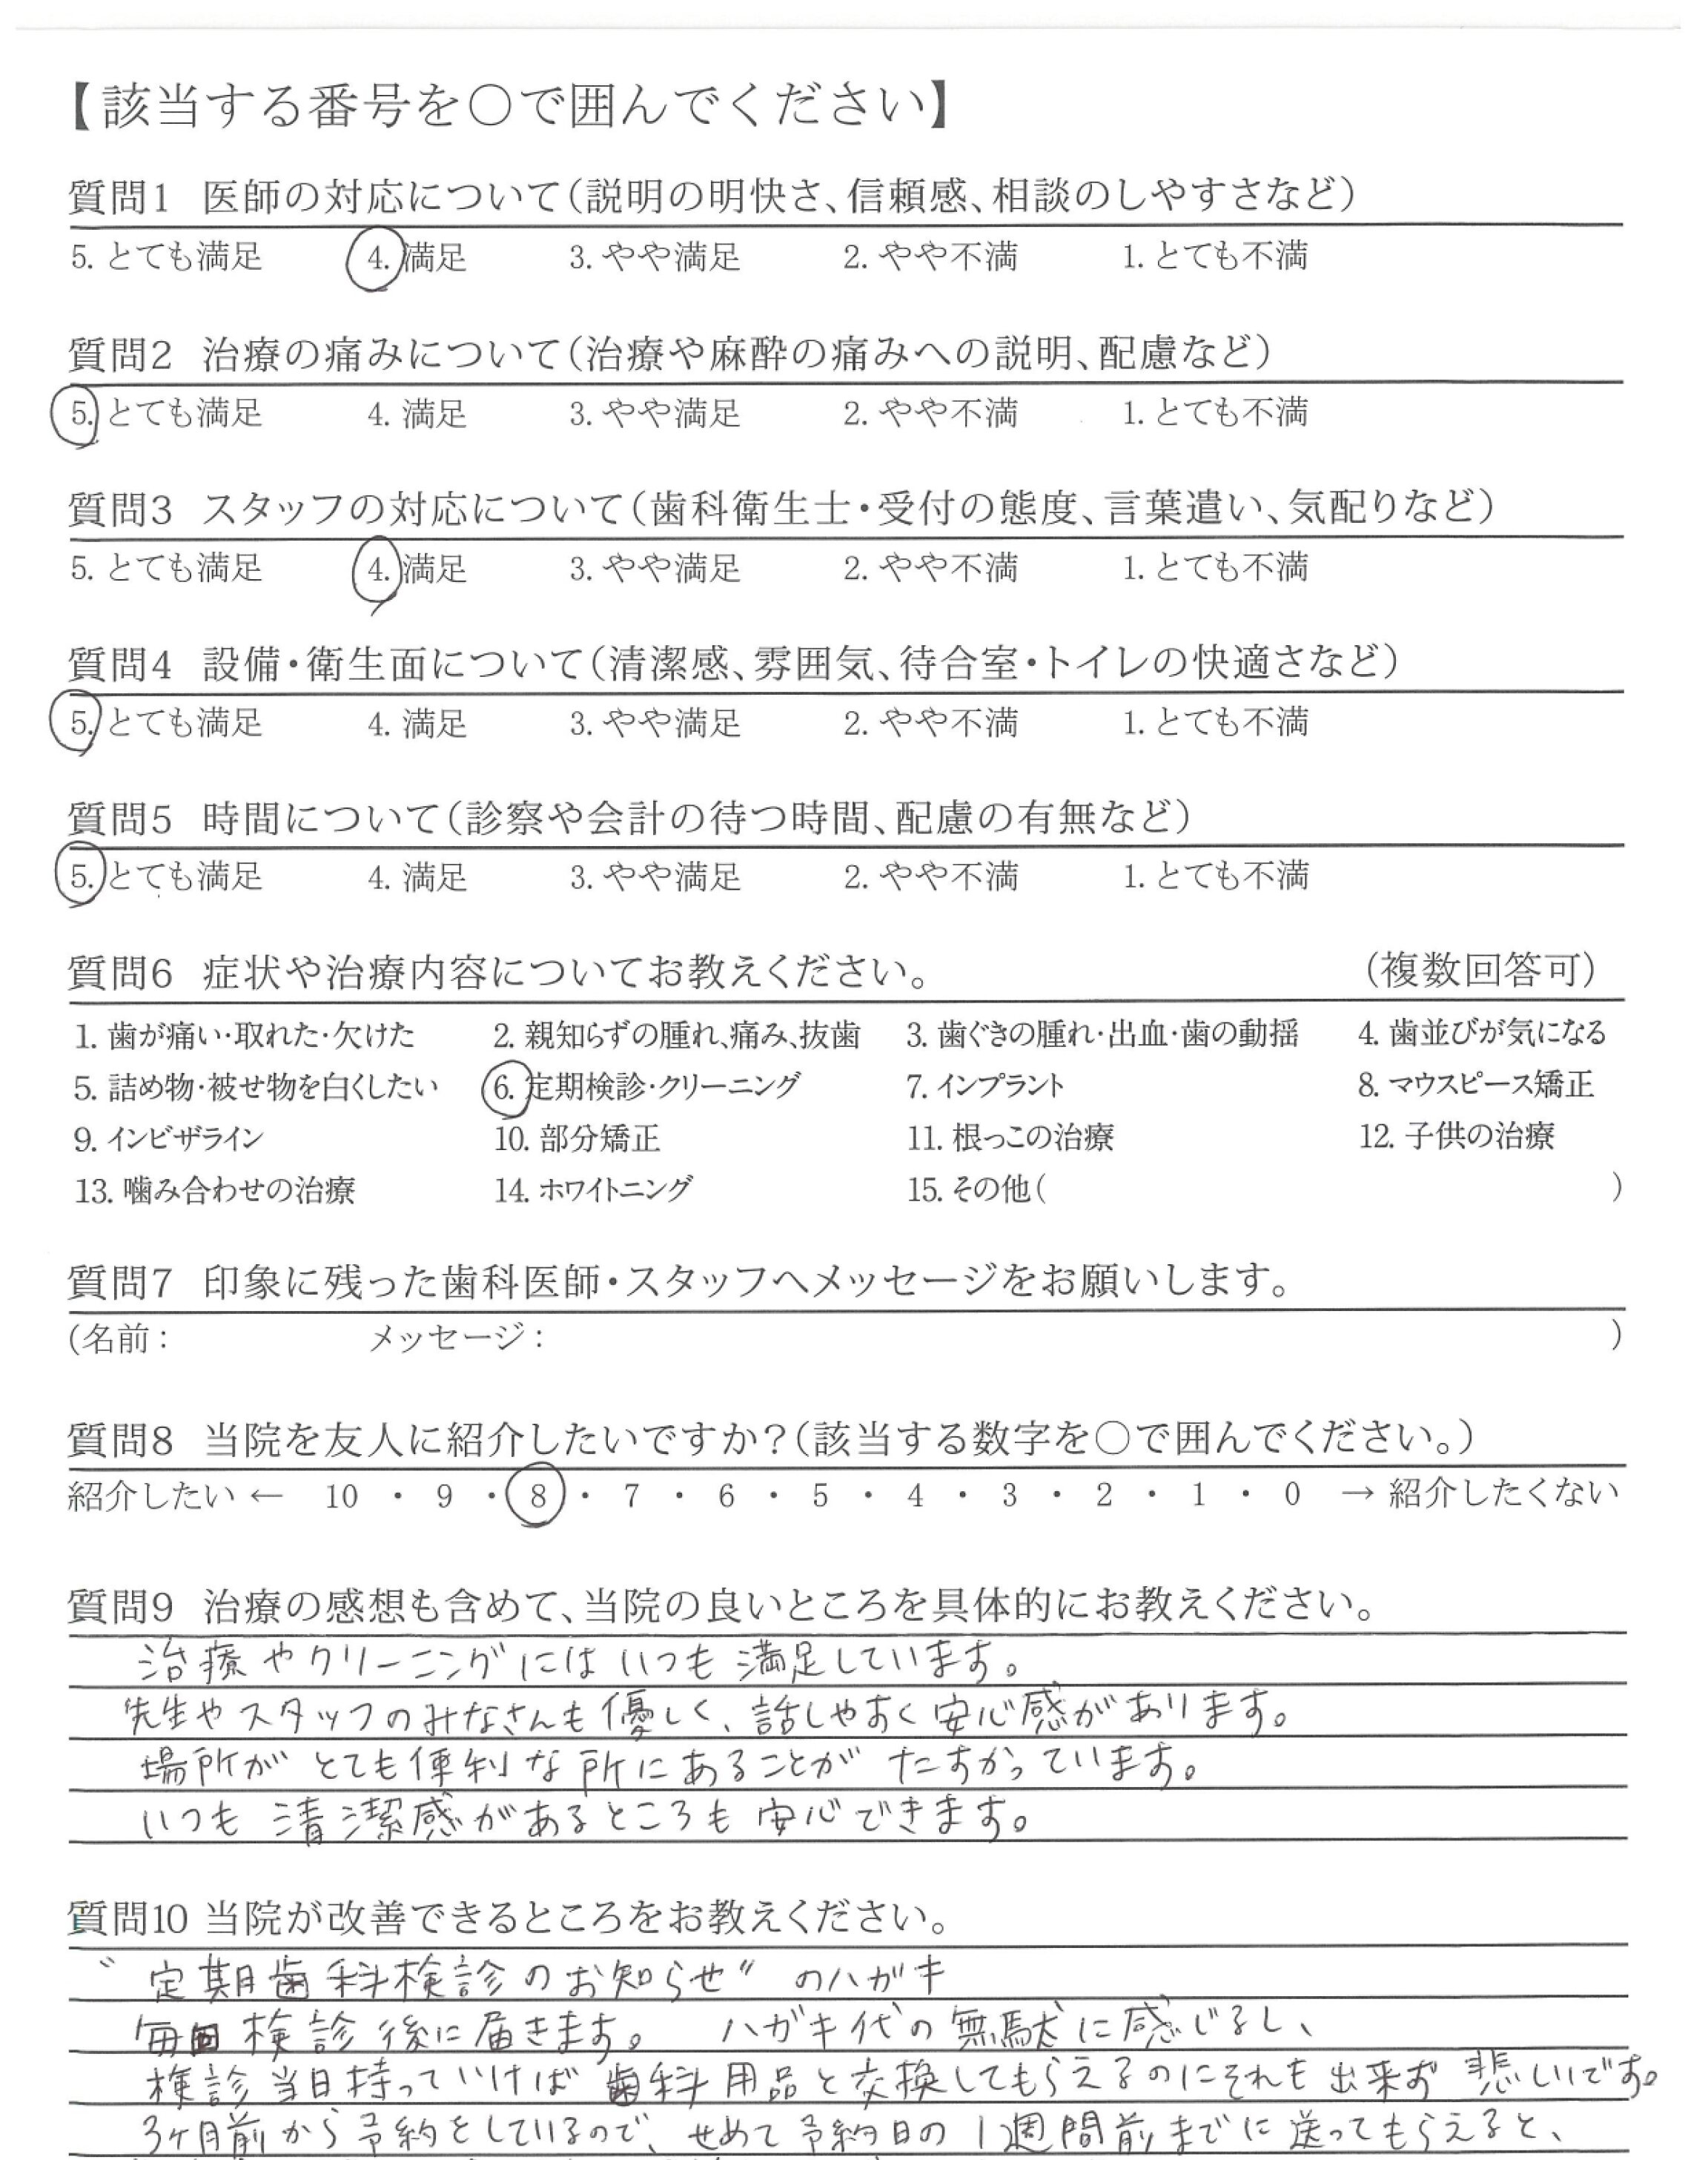 【該当する番号を〇で囲んでください】
質問1 医師の対応について(説明の明快さ、信頼感、相談のしやすさなど)
5. とても満足 4. 満足 3. やや満足 2. やや不満 1. とても不満
質問2 治療の痛みについて(治療や麻酔の痛みへの説明、配慮など)
5. とても満足 4. 満足 3. やや満足 2. やや不満 1. とても不満
質問3 スタッフの対応について(歯科衛生士・受付の態度、言葉遣い、気配りなど)
5. とても満足 4. 満足 3. やや満足 2. やや不満 1. とても不満
質問4 設備・衛生面について(清潔感、雰囲気、待合室・トイレの快適さなど)
5. とても満足 4. 満足 3. やや満足 2. やや不満 1. とても不満
質問5 時間について(診察や会計の待つ時間、配慮の有無など)
5. とても満足 4. 満足 3. やや満足 2. やや不満 1. とても不満
質問6 症状や治療内容についてお教えください。 (複数回答可)
1. 歯が痛い・取れた・欠けた 2. 親知らずの腫れ、痛み、抜歯 3. 歯ぐきの腫れ・出血・歯の動揺 4. 歯並びが気になる
5. 詰め物・被せ物を白くしたい 6. 定期検診・クリーニング 7. インプラント 8. マウスピース矯正
9. インビザライン 10. 部分矯正 11. 根っこの治療 12. 子供の治療
13. 噛み合わせの治療 14. ホワイトニング 15. その他( )
質問7 印象に残った歯科医師・スタッフへメッセージをお願いします。
(名前: メッセージ: )
質問8 当院を友人に紹介したいですか?(該当する数字を〇で囲んでください。)
紹介したい ← 10 ・ 9 ・ 8 ・ 7 ・ 6 ・ 5 ・ 4 ・ 3 ・ 2 ・ 1 ・ 0 → 紹介したくない
質問9 治療の感想も含めて、当院の良いところを具体的にお教えください。
治療やクリーニングにはいつも満足しています。
先生やスタッフのみなさんも優しく、話しやすく安心感があります。
場所がとても便利な所にあることがたすかっています。
いつも清潔感があるところも安心できます。
質問10 当院が改善できるところをお教えください。
〝定期歯科検診のお知らせ〟のハガキ
毎回検診後に届きます。 ハガキ代の無駄に感じるし、
検診当日持っていけば歯科用品と交換してもらえるのにそれも出来ず悲しいです。
3ヶ月前から予約をしているので、せめて予約日の1週間前までに送ってもらえると、